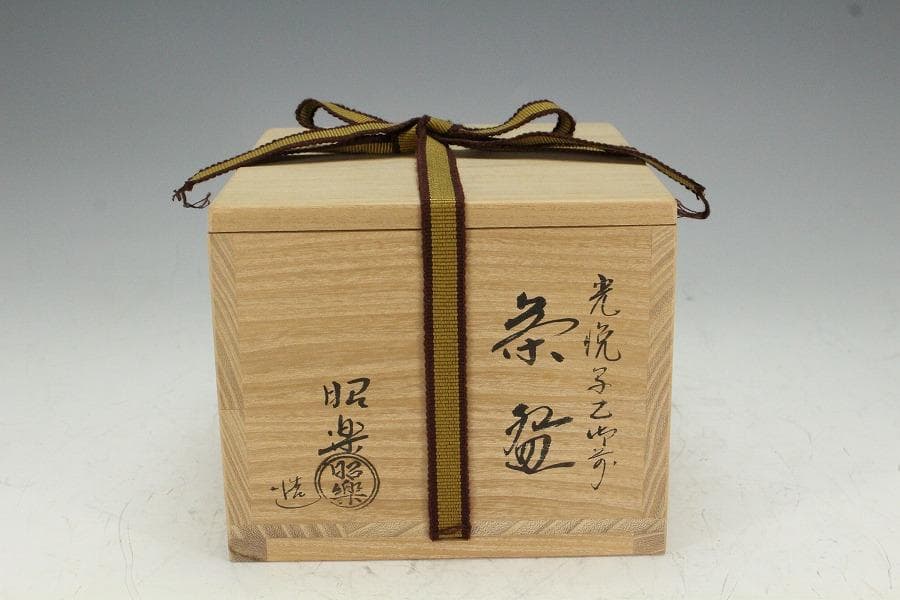 光悦写乙御前
茶盌
昭楽
造
昭樂